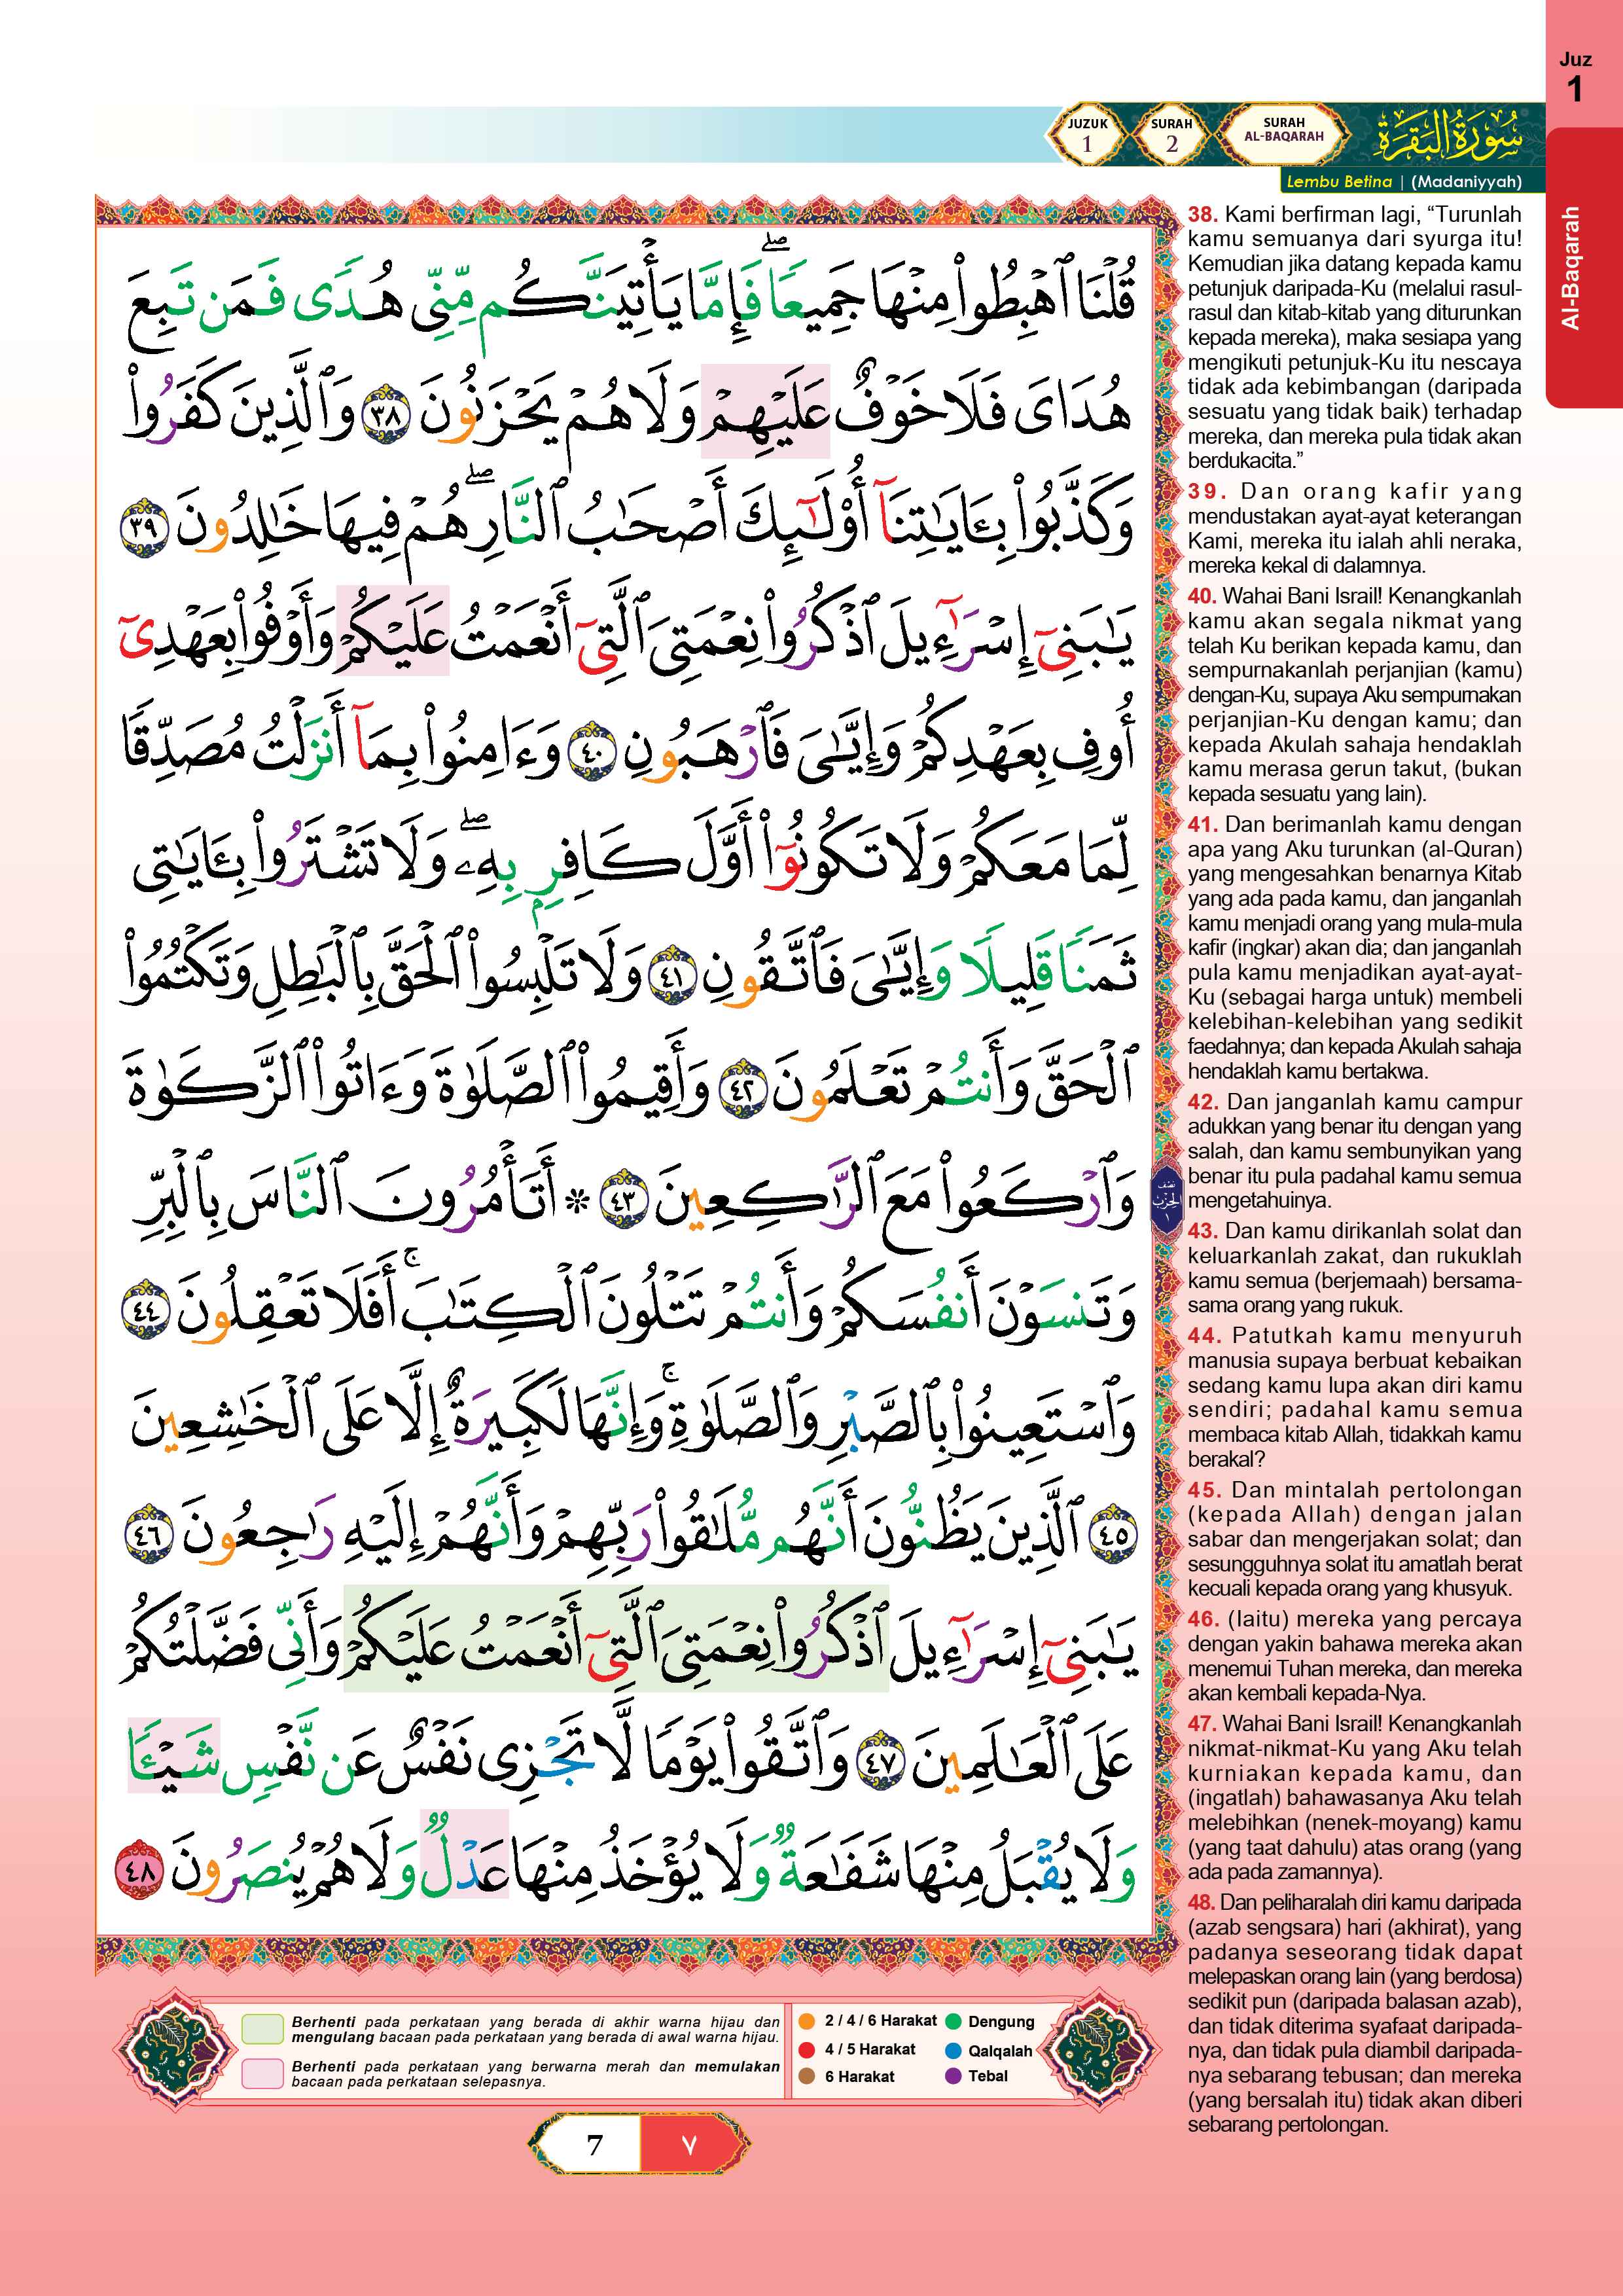 Juz
1
JUZUK
1
SURAH
2
SURAH
AL-BAQARAH
سُورَةُ البَقَرَةِ
Lembu Betina | (Madaniyyah)
Al-Baqarah
قُلْنَا ٱهْبِطُوا۟ مِنْهَا جَمِيعًا ۖ فَإِمَّا يَأْتِيَنَّكُم مِّنِّى هُدًى فَمَن تَبِعَ
هُدَاىَ فَلَا خَوْفٌ عَلَيْهِمْ وَلَا هُمْ يَحْزَنُونَ ٣٨ وَٱلَّذِينَ كَفَرُوا۟
وَكَذَّبُوا۟ بِـَٔايَـٰتِنَآ أُو۟لَـٰٓئِكَ أَصْحَـٰبُ ٱلنَّارِ ۖ هُمْ فِيهَا خَـٰلِدُونَ ٣٩
يَـٰبَنِىٓ إِسْرَٰٓءِيلَ ٱذْكُرُوا۟ نِعْمَتِىَ ٱلَّتِىٓ أَنْعَمْتُ عَلَيْكُمْ وَأَوْفُوا۟ بِعَهْدِىٓ
أُوفِ بِعَهْدِكُمْ وَإِيَّـٰىَ فَٱرْهَبُونِ ٤٠ وَءَامِنُوا۟ بِمَآ أَنزَلْتُ مُصَدِّقًا
لِّمَا مَعَكُمْ وَلَا تَكُونُوٓا۟ أَوَّلَ كَافِرٍۭ بِهِۦ ۖ وَلَا تَشْتَرُوا۟ بِـَٔايَـٰتِى
ثَمَنًا قَلِيلًا وَإِيَّـٰىَ فَٱتَّقُونِ ٤١ وَلَا تَلْبِسُوا۟ ٱلْحَقَّ بِٱلْبَـٰطِلِ وَتَكْتُمُوا۟
ٱلْحَقَّ وَأَنتُمْ تَعْلَمُونَ ٤٢ وَأَقِيمُوا۟ ٱلصَّلَوٰةَ وَءَاتُوا۟ ٱلزَّكَوٰةَ
وَٱرْكَعُوا۟ مَعَ ٱلرَّٰكِعِينَ ٤٣ ۞ أَتَأْمُرُونَ ٱلنَّاسَ بِٱلْبِرِّ
وَتَنسَوْنَ أَنفُسَكُمْ وَأَنتُمْ تَتْلُونَ ٱلْكِتَـٰبَ ۚ أَفَلَا تَعْقِلُونَ ٤٤
وَٱسْتَعِينُوا۟ بِٱلصَّبْرِ وَٱلصَّلَوٰةِ ۚ وَإِنَّهَا لَكَبِيرَةٌ إِلَّا عَلَى ٱلْخَـٰشِعِينَ
٤٥ ٱلَّذِينَ يَظُنُّونَ أَنَّهُم مُّلَـٰقُوا۟ رَبِّهِمْ وَأَنَّهُمْ إِلَيْهِ رَٰجِعُونَ ٤٦
يَـٰبَنِىٓ إِسْرَٰٓءِيلَ ٱذْكُرُوا۟ نِعْمَتِىَ ٱلَّتِىٓ أَنْعَمْتُ عَلَيْكُمْ وَأَنِّى فَضَّلْتُكُمْ
عَلَى ٱلْعَـٰلَمِينَ ٤٧ وَٱتَّقُوا۟ يَوْمًا لَّا تَجْزِى نَفْسٌ عَن نَّفْسٍ شَيْـًٔا
وَلَا يُقْبَلُ مِنْهَا شَفَـٰعَةٌ وَلَا يُؤْخَذُ مِنْهَا عَدْلٌ وَلَا هُمْ يُنصَرُونَ ٤٨
نصف
الحزب
١
38. Kami berfirman lagi, “Turunlah
kamu semuanya dari syurga itu!
Kemudian jika datang kepada kamu
petunjuk daripada-Ku (melalui rasul-
rasul dan kitab-kitab yang diturunkan
kepada mereka), maka sesiapa yang
mengikuti petunjuk-Ku itu nescaya
tidak ada kebimbangan (daripada
sesuatu yang tidak baik) terhadap
mereka, dan mereka pula tidak akan
berdukacita.”
39. Dan orang kafir yang
mendustakan ayat-ayat keterangan
Kami, mereka itu ialah ahli neraka,
mereka kekal di dalamnya.
40. Wahai Bani Israil! Kenangkanlah
kamu akan segala nikmat yang
telah Ku berikan kepada kamu, dan
sempurnakanlah perjanjian (kamu)
dengan-Ku, supaya Aku sempurnakan
perjanjian-Ku dengan kamu; dan
kepada Akulah sahaja hendaklah
kamu merasa gerun takut, (bukan
kepada sesuatu yang lain).
41. Dan berimanlah kamu dengan
apa yang Aku turunkan (al-Quran)
yang mengesahkan benarnya Kitab
yang ada pada kamu, dan janganlah
kamu menjadi orang yang mula-mula
kafir (ingkar) akan dia; dan janganlah
pula kamu menjadikan ayat-ayat-
Ku (sebagai harga untuk) membeli
kelebihan-kelebihan yang sedikit
faedahnya; dan kepada Akulah sahaja
hendaklah kamu bertakwa.
42. Dan janganlah kamu campur
adukkan yang benar itu dengan yang
salah, dan kamu sembunyikan yang
benar itu pula padahal kamu semua
mengetahuinya.
43. Dan kamu dirikanlah solat dan
keluarkanlah zakat, dan rukuklah
kamu semua (berjemaah) bersama-
sama orang yang rukuk.
44. Patutkah kamu menyuruh
manusia supaya berbuat kebaikan
sedang kamu lupa akan diri kamu
sendiri; padahal kamu semua
membaca kitab Allah, tidakkah kamu
berakal?
45. Dan mintalah pertolongan
(kepada Allah) dengan jalan
sabar dan mengerjakan solat; dan
sesungguhnya solat itu amatlah berat
kecuali kepada orang yang khusyuk.
46. (Iaitu) mereka yang percaya
dengan yakin bahawa mereka akan
menemui Tuhan mereka, dan mereka
akan kembali kepada-Nya.
47. Wahai Bani Israil! Kenangkanlah
nikmat-nikmat-Ku yang Aku telah
kurniakan kepada kamu, dan
(ingatlah) bahawasanya Aku telah
melebihkan (nenek-moyang) kamu
(yang taat dahulu) atas orang (yang
ada pada zamannya).
48. Dan peliharalah diri kamu daripada
(azab sengsara) hari (akhirat), yang
padanya seseorang tidak dapat
melepaskan orang lain (yang berdosa)
sedikit pun (daripada balasan azab),
dan tidak diterima syafaat daripada-
nya, dan tidak pula diambil daripada-
nya sebarang tebusan; dan mereka
(yang bersalah itu) tidak akan diberi
sebarang pertolongan.
Berhenti pada perkataan yang berada di akhir warna hijau dan
mengulang bacaan pada perkataan yang berada di awal warna hijau.
Berhenti pada perkataan yang berwarna merah dan memulakan
bacaan pada perkataan selepasnya.
2 / 4 / 6 Harakat
4 / 5 Harakat
6 Harakat
Dengung
Qalqalah
Tebal
7
٧